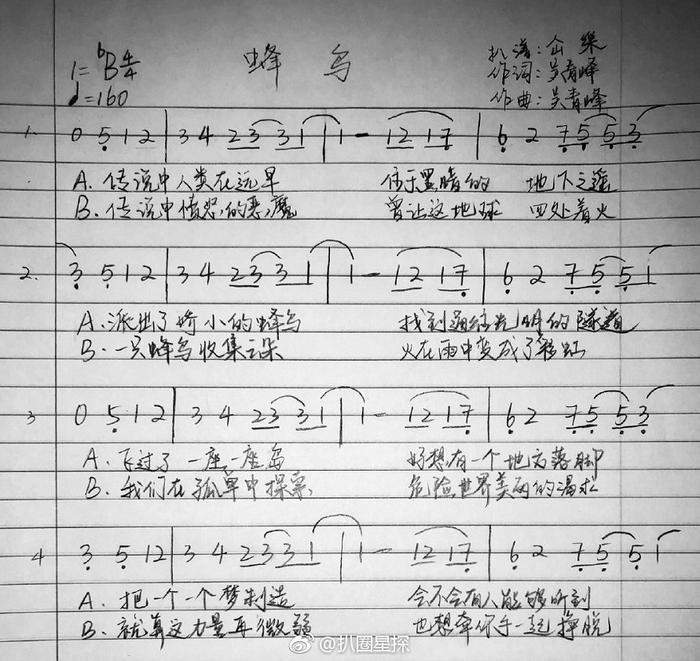 蜂鸟
1=♭B 4/4
♩=160
扒谱:
作词:吴青峰
作曲:吴青峰
1. 0 5 1 2 | 3 4 23 31 | 1 - 12 17 | 6 2 75 53
A. 传说中人类在远早 你于黑暗的 地下之遥
B. 传说中愤怒的恶魔 曾让这地球 四处着火
2. 3 5 1 2 | 3 4 23 31 | 1 - 12 17 | 6 2 75 51
A. 派出了娇小的蜂鸟 找到通往光明的隧道
B. 一只蜂鸟收集云朵 火在雨中变成了彩虹
3 0 5 1 2 | 3 4 23 31 | 1 - 12 17 | 6 2 75 53
A. 飞过了一座一座岛 好想有一个地方落脚
B. 我们在孤单中探索 危险世界美丽的渴求
4 3 5 12 | 3 4 23 31 | 1 - 12 17 | 6 2 75 51
A. 把一个一个梦制造 会不会有人能够听到
B. 就算这力量再微弱 也想牵你手一起挣脱
@扒圈星探